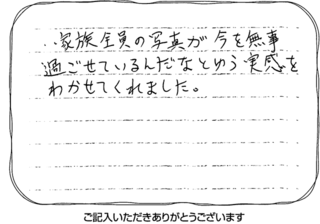 家族全員の写真が今を無事
過ごせているんだなとゆう実感を
わかせてくれました。
ご記入いただきありがとうございます